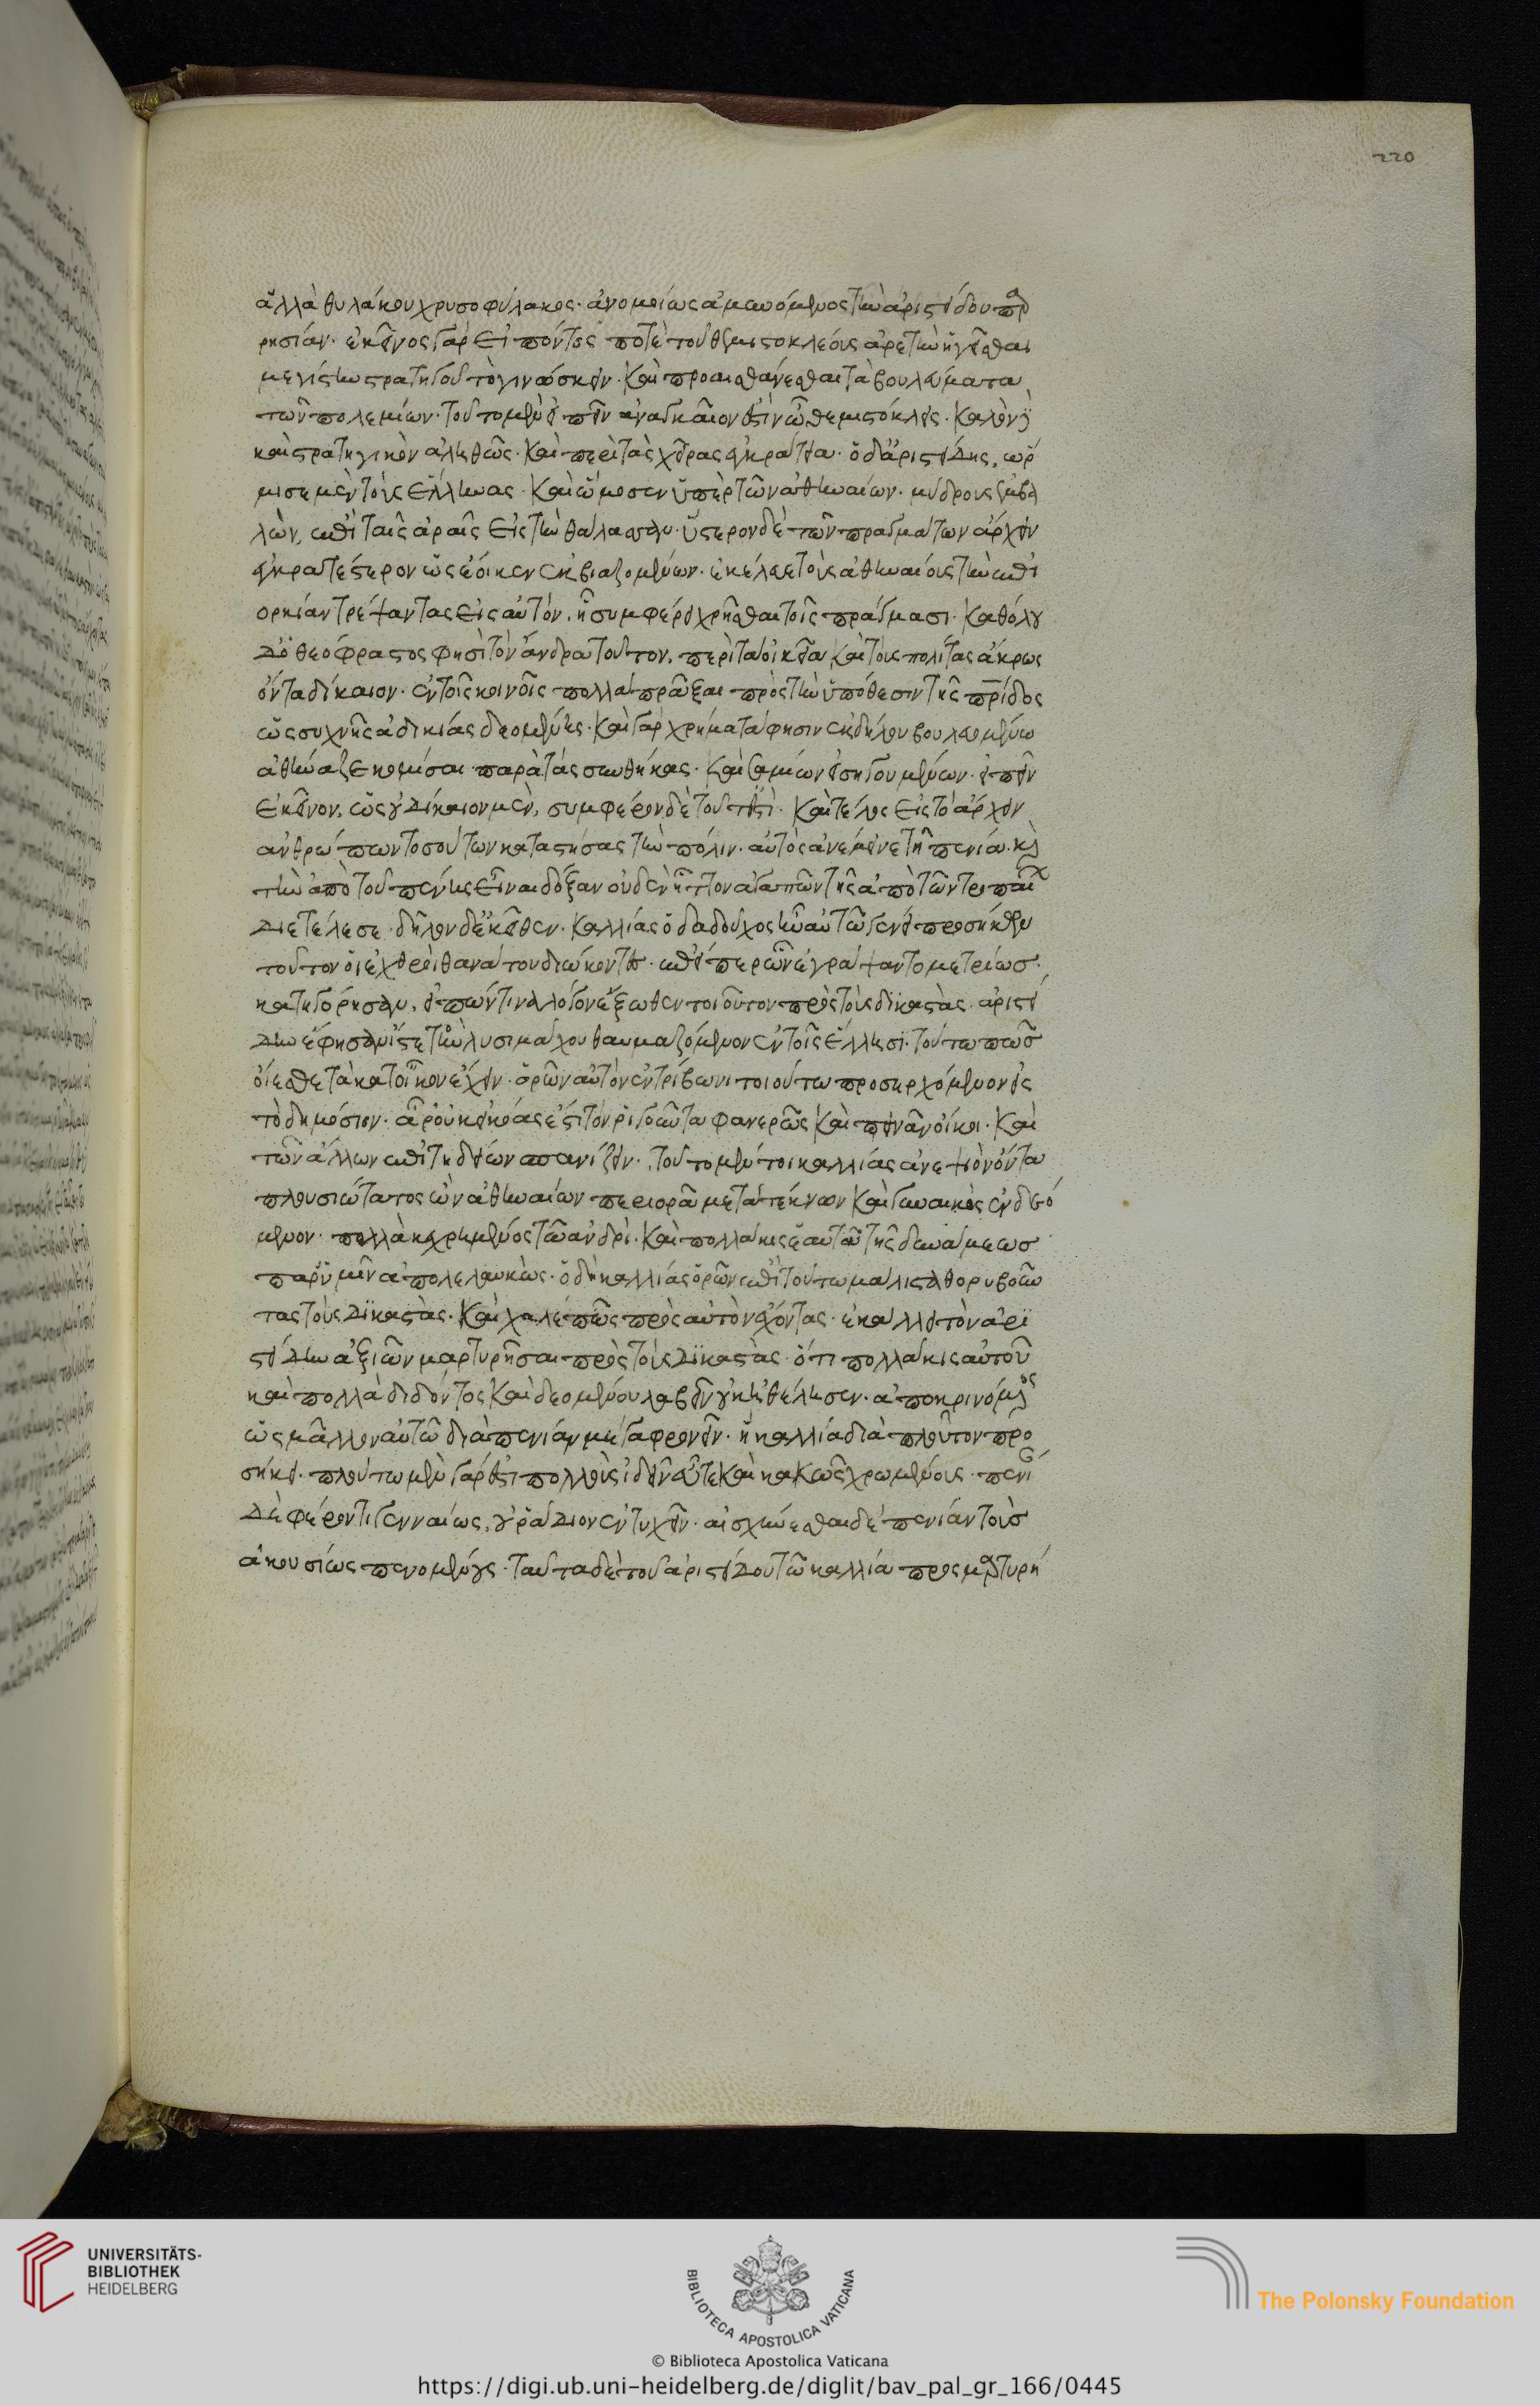 220
ἀλλὰ θυλάκου χρυσοφύλακος· ἀνομοίως ἀμυνόμενος τὴν ἀριστείδου παρ
ρησίαν· ἐκεῖνος γὰρ εἰπόντός ποτὲ τοῦ θεμιστοκλέους ἀρετὴν ἡγεῖσθαι
μεγίστην στρατηγοῦ τὸ γινώσκειν· καὶ προαισθάνεσθαι τὰ βουλεύματα
τῶν πολεμίων· τοῦτο μὲν εἰπεῖν ἀναγκαῖον ἐστὶν ὦ θεμιστόκλεις· καλὸν δὲ
καὶ στρατηγικὸν ἀληθῶς· καὶ περὶ τὰς χεῖρας ἐγκράτεια· ὁ δ' ἀριστείδης, ὥρ
κισε μὲν τοὺς ἕλληνας· καὶ ὤμοσεν ὑπὲρ τῶν ἀθηναίων· μύδρους ἐμβα
λὼν, ἐπὶ ταῖς ἀραῖς εἰς τὴν θάλασσαν· ὕστερον δὲ τῶν πραγμάτων ἄρχειν
ἐγκρατέστερον ὡς ἔοικεν ἐκβιαζομένων· ἐκέλευε τοὺς ἀθηναίους τὴν ἐπι
ορκίαν τρέψαντας εἰς αὐτὸν, ᾗ συμφέρει χρῆσθαι τοῖς πράγμασι· καθόλου
δ' ὁ θεόφραστος φησὶ τὸν ἄνδρα τοῦτον, περὶ τὰ οἰκεῖα καὶ τοὺς πολίτας ἄκρως
ὄντα δίκαιον· ἐν τοῖς κοινοῖς πολλὰ πρᾶξαι πρὸς τὴν ὑπόθεσιν τῆς πρίδος
ὡς συχνῆς ἀδικίας δεομένης· καὶ γὰρ χρήματά φησιν ἐκ δήλου βουλευομένων
ἀθήναζε κομίσαι παρὰ τὰς συνθήκας· καὶ σαμίων εἰσηγουμένων· εἰπεῖν
ἐκεῖνον, ὡς οὐ δίκαιον μὲν, συμφέρον δὲ τοῦτ' ἐστί· καὶ τέλος εἰς τὸ ἄρχειν
ἀνθρώπων τοσούτων καταστήσας τὴν πόλιν· αὐτὸς ἀνέμεινε τῇ πενίᾳ· καὶ
τὴν ἀπὸ τοῦ πένης εἶναι δόξαν οὐδὲν ἧττον ἀγαπῶν τῆς ἀπὸ τῶν τροπαίων
διετέλεσε· δῆλον δ' ἐκεῖθεν· καλλίας ὁ δαδοῦχος ἦν αὐτῷ γένει προσήκων
τοῦτον οἱ ἐχθροὶ θανάτου διώκοντες· ἐπεὶ περ ὧν ἐγράψαντο μετρίως
κατηγόρησαν, εἰπών τινα λόγον ἔξωθεν τοιοῦτον πρὸς τοὺς δικαστὰς· ἀριστεί
δην ἔφησαν ἴστε τὸν λυσιμάχου θαυμαζόμενον ἐν τοῖς ἕλλησι· τούτῳ πῶς
οἴεσθε τὰ κατ' οἶκον ἔχειν· ὁρῶν αὐτὸν ἐν τρίβωνι τοιούτῳ προσερχόμενον εἰς
τὸ δημόσιον· ἆρ' οὐκ εἰκός ἐστι τὸν ῥιγοῦντα φανερῶς καὶ πεινᾶν οἴκοι· καὶ
τῶν ἄλλων ἐπιτηδείων σπανίζειν· τοῦτο μέν τοι καλλίας ἀνεψιὸν ὄντα
πλουσιώτατος ὢν ἀθηναίων περιορᾷ μετὰ τέκνων καὶ γυναικὸς ἐνδεό
μενον· πολλὰ κεχρημένος τῷ ἀνδρὶ· καὶ πολλάκις αὐτοῦ τῆς δυνάμεως
παρ' ὑμῖν ἀπολελαυκὼς· ὁ δὴ καλλίας ὁρῶν ἐπὶ τούτῳ μάλιστα θορυβοῦν
τας τοὺς δικαστὰς· καὶ χαλεπῶς πρὸς αὐτὸν ἔχοντας· ἐκάλλει τὸν ἀρι
στείδην ἀξιῶν μαρτυρῆσαι πρὸς τοὺς δικαστὰς ὅτι πολλάκις αὐτοῦ
καὶ πολλὰ διδόντος καὶ δεομένου λαβεῖν οὐκ ἠθέλησεν· ἀποκρινόμενος
ὡς μᾶλλον αὐτῷ διὰ πενίαν μέγα φρονεῖν· ἢ καλλίᾳ διὰ πλοῦτον προ
σήκει· πλούτῳ μὲν γάρ ἐστι πολλοὺς ἰδεῖν εὖ τε καὶ κακῶς χρωμένους· πενίαν
δὲ φέροντι γενναίως, οὐ ῥᾴδιον ἐντυχεῖν· αἰσχύνεσθαι δὲ πενίαν τοὺς
ἀκουσίως πενομένους· ταῦτα δὲ τοῦ ἀριστείδου τῷ καλλίᾳ προσμαρτυρή
UNIVERSITÄTS-
BIBLIOTHEK
HEIDELBERG
BIBLIOTECA APOSTOLICA VATICANA
© Biblioteca Apostolica Vaticana
The Polonsky Foundation
https://digi.ub.uni-heidelberg.de/diglit/bav_pal_gr_166/0445